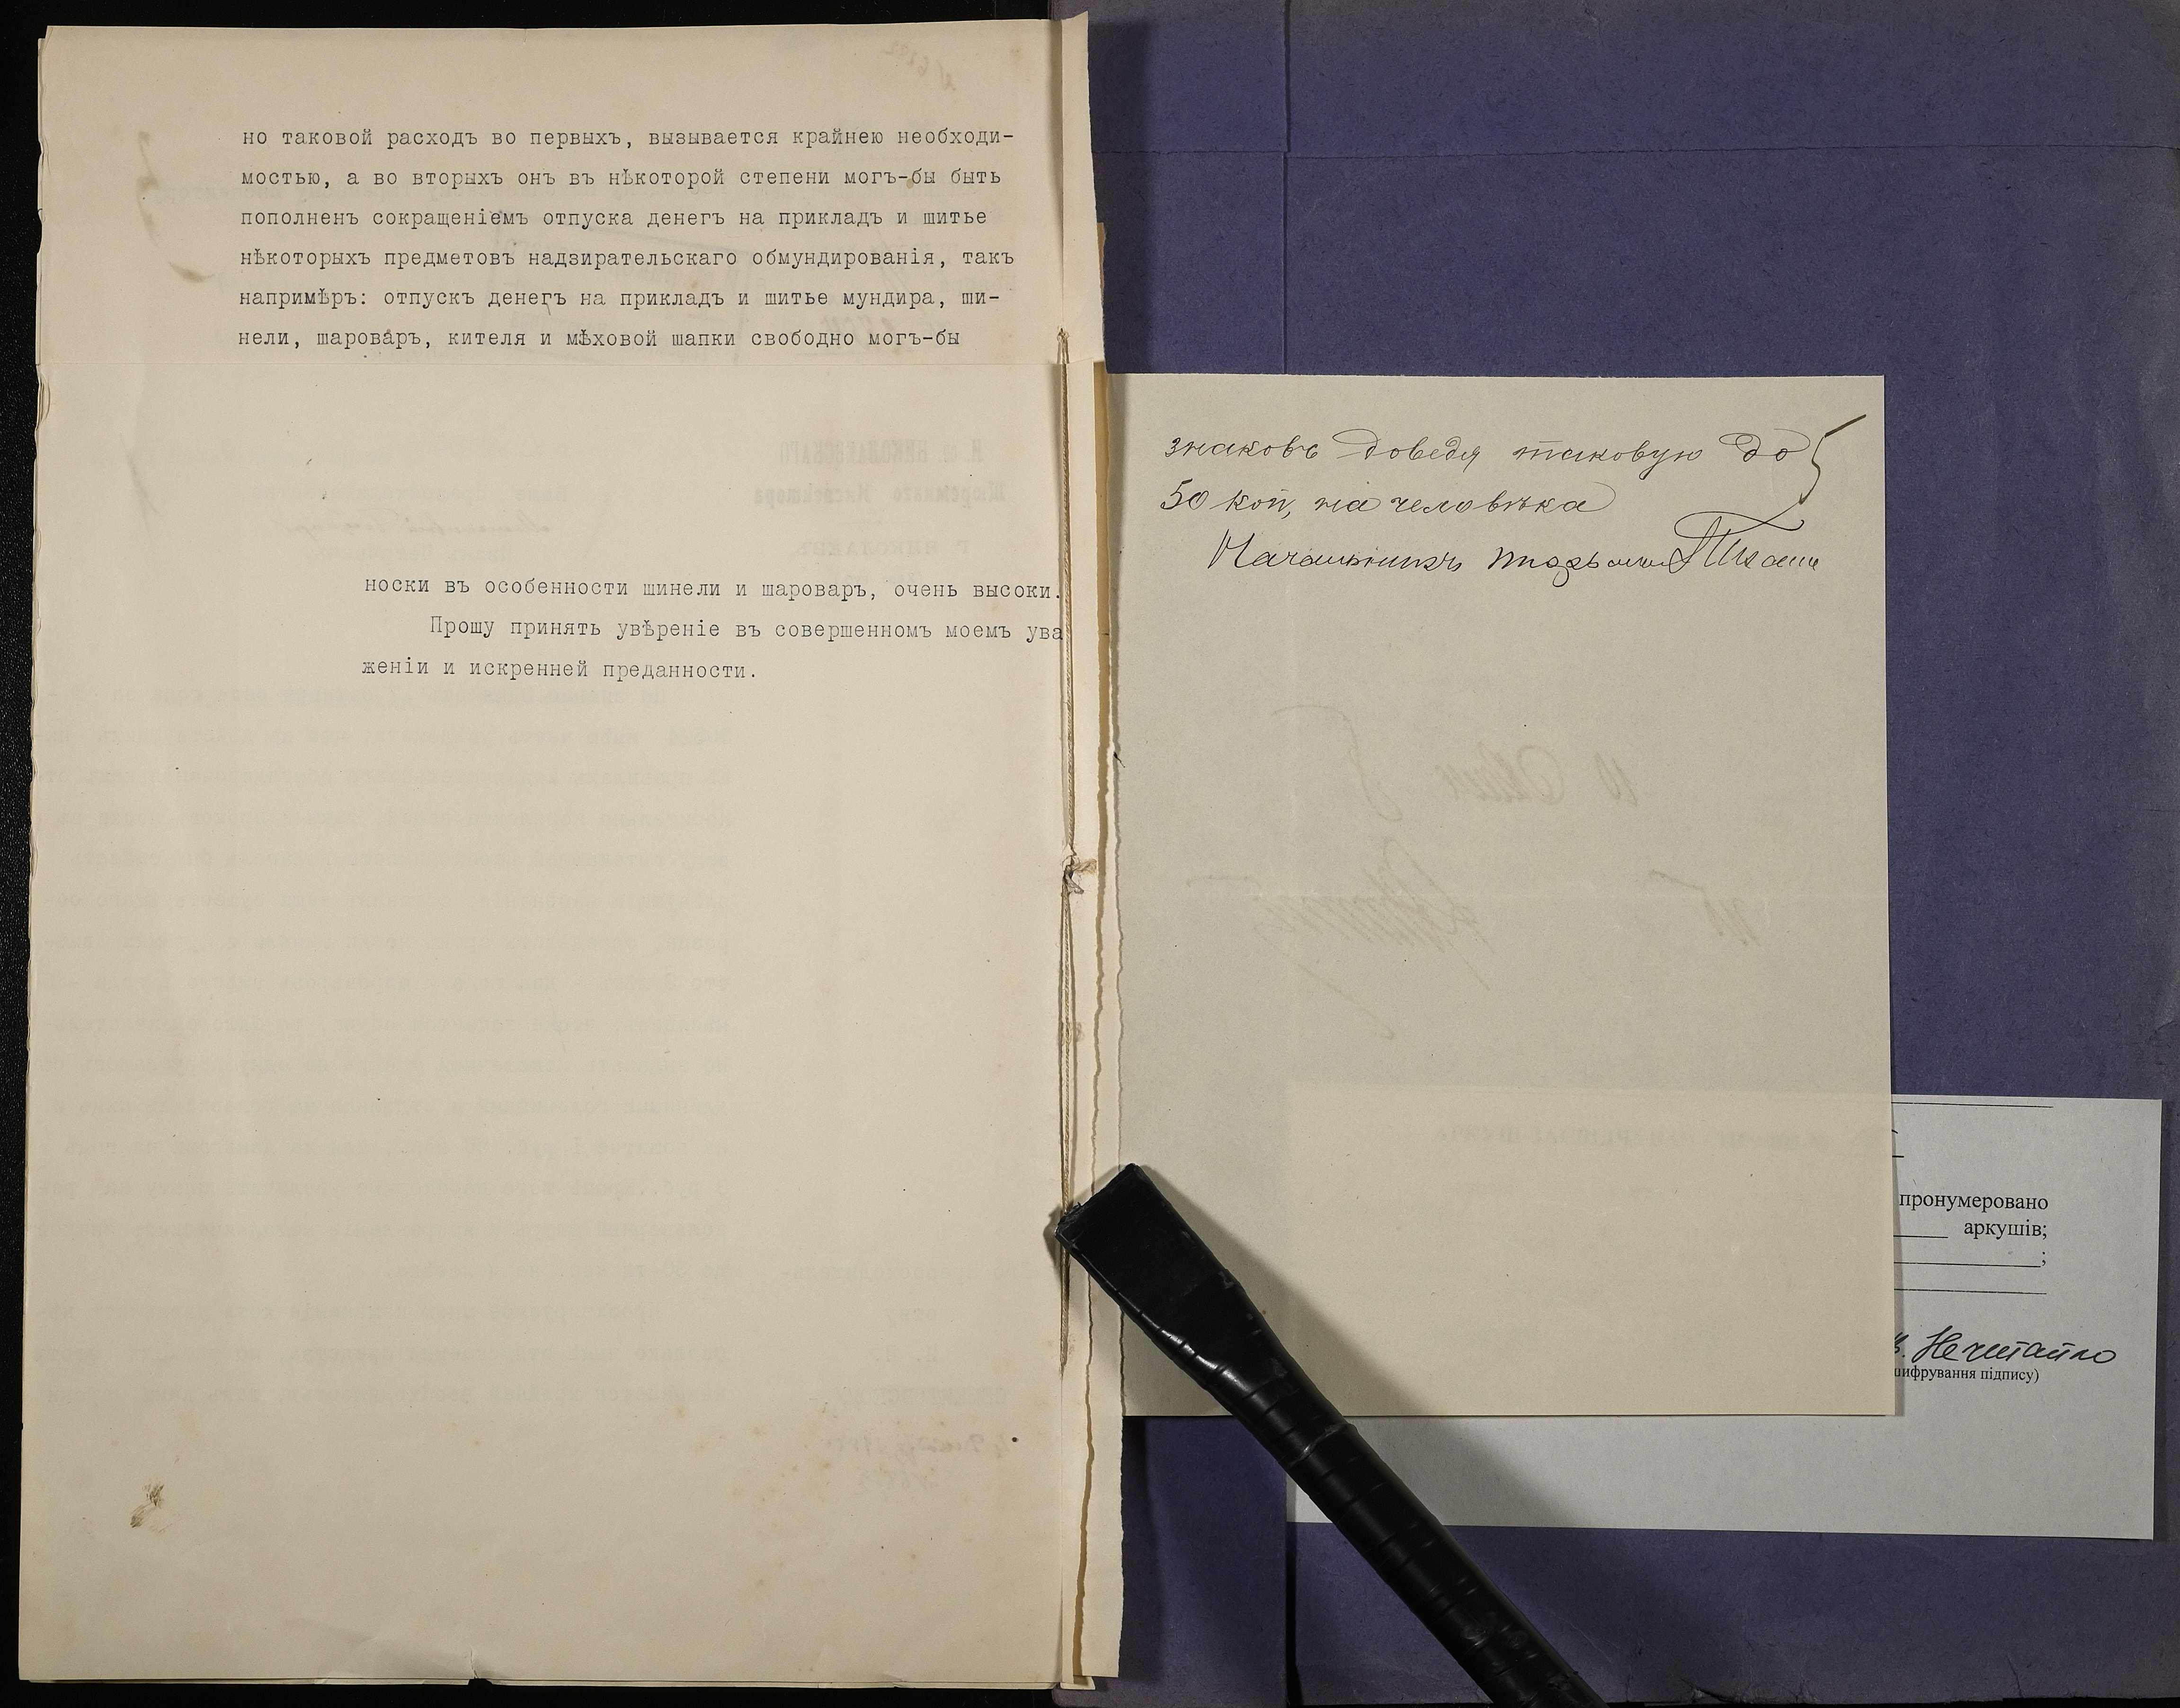 но таковой расходъ во первыхъ, вызывается крайнею необходи-
мостью, а во вторыхъ онъ въ нѣкоторой степени могъ-бы быть
пополненъ сокращеніемъ отпуска денегъ на прикладъ и шитье
нѣкоторыхъ предметовъ надзирательскаго обмундированія, такъ
напримѣръ: отпускъ денегъ на прикладъ и шитье мундира, ши-
нели, шароваръ, кителя и мѣховой шапки свободно могъ-бы
носки въ особенности шинели и шароваръ, очень высоки.
Прошу принять увѣреніе въ совершенномъ моемъ ува
женіи и искренней преданности.
знаковъ доведя таковую до
50 коп, на человѣка
Начальникъ тюрьмы
пронумеровано
аркушів;
;
Нечитайло
шифрування підпису)